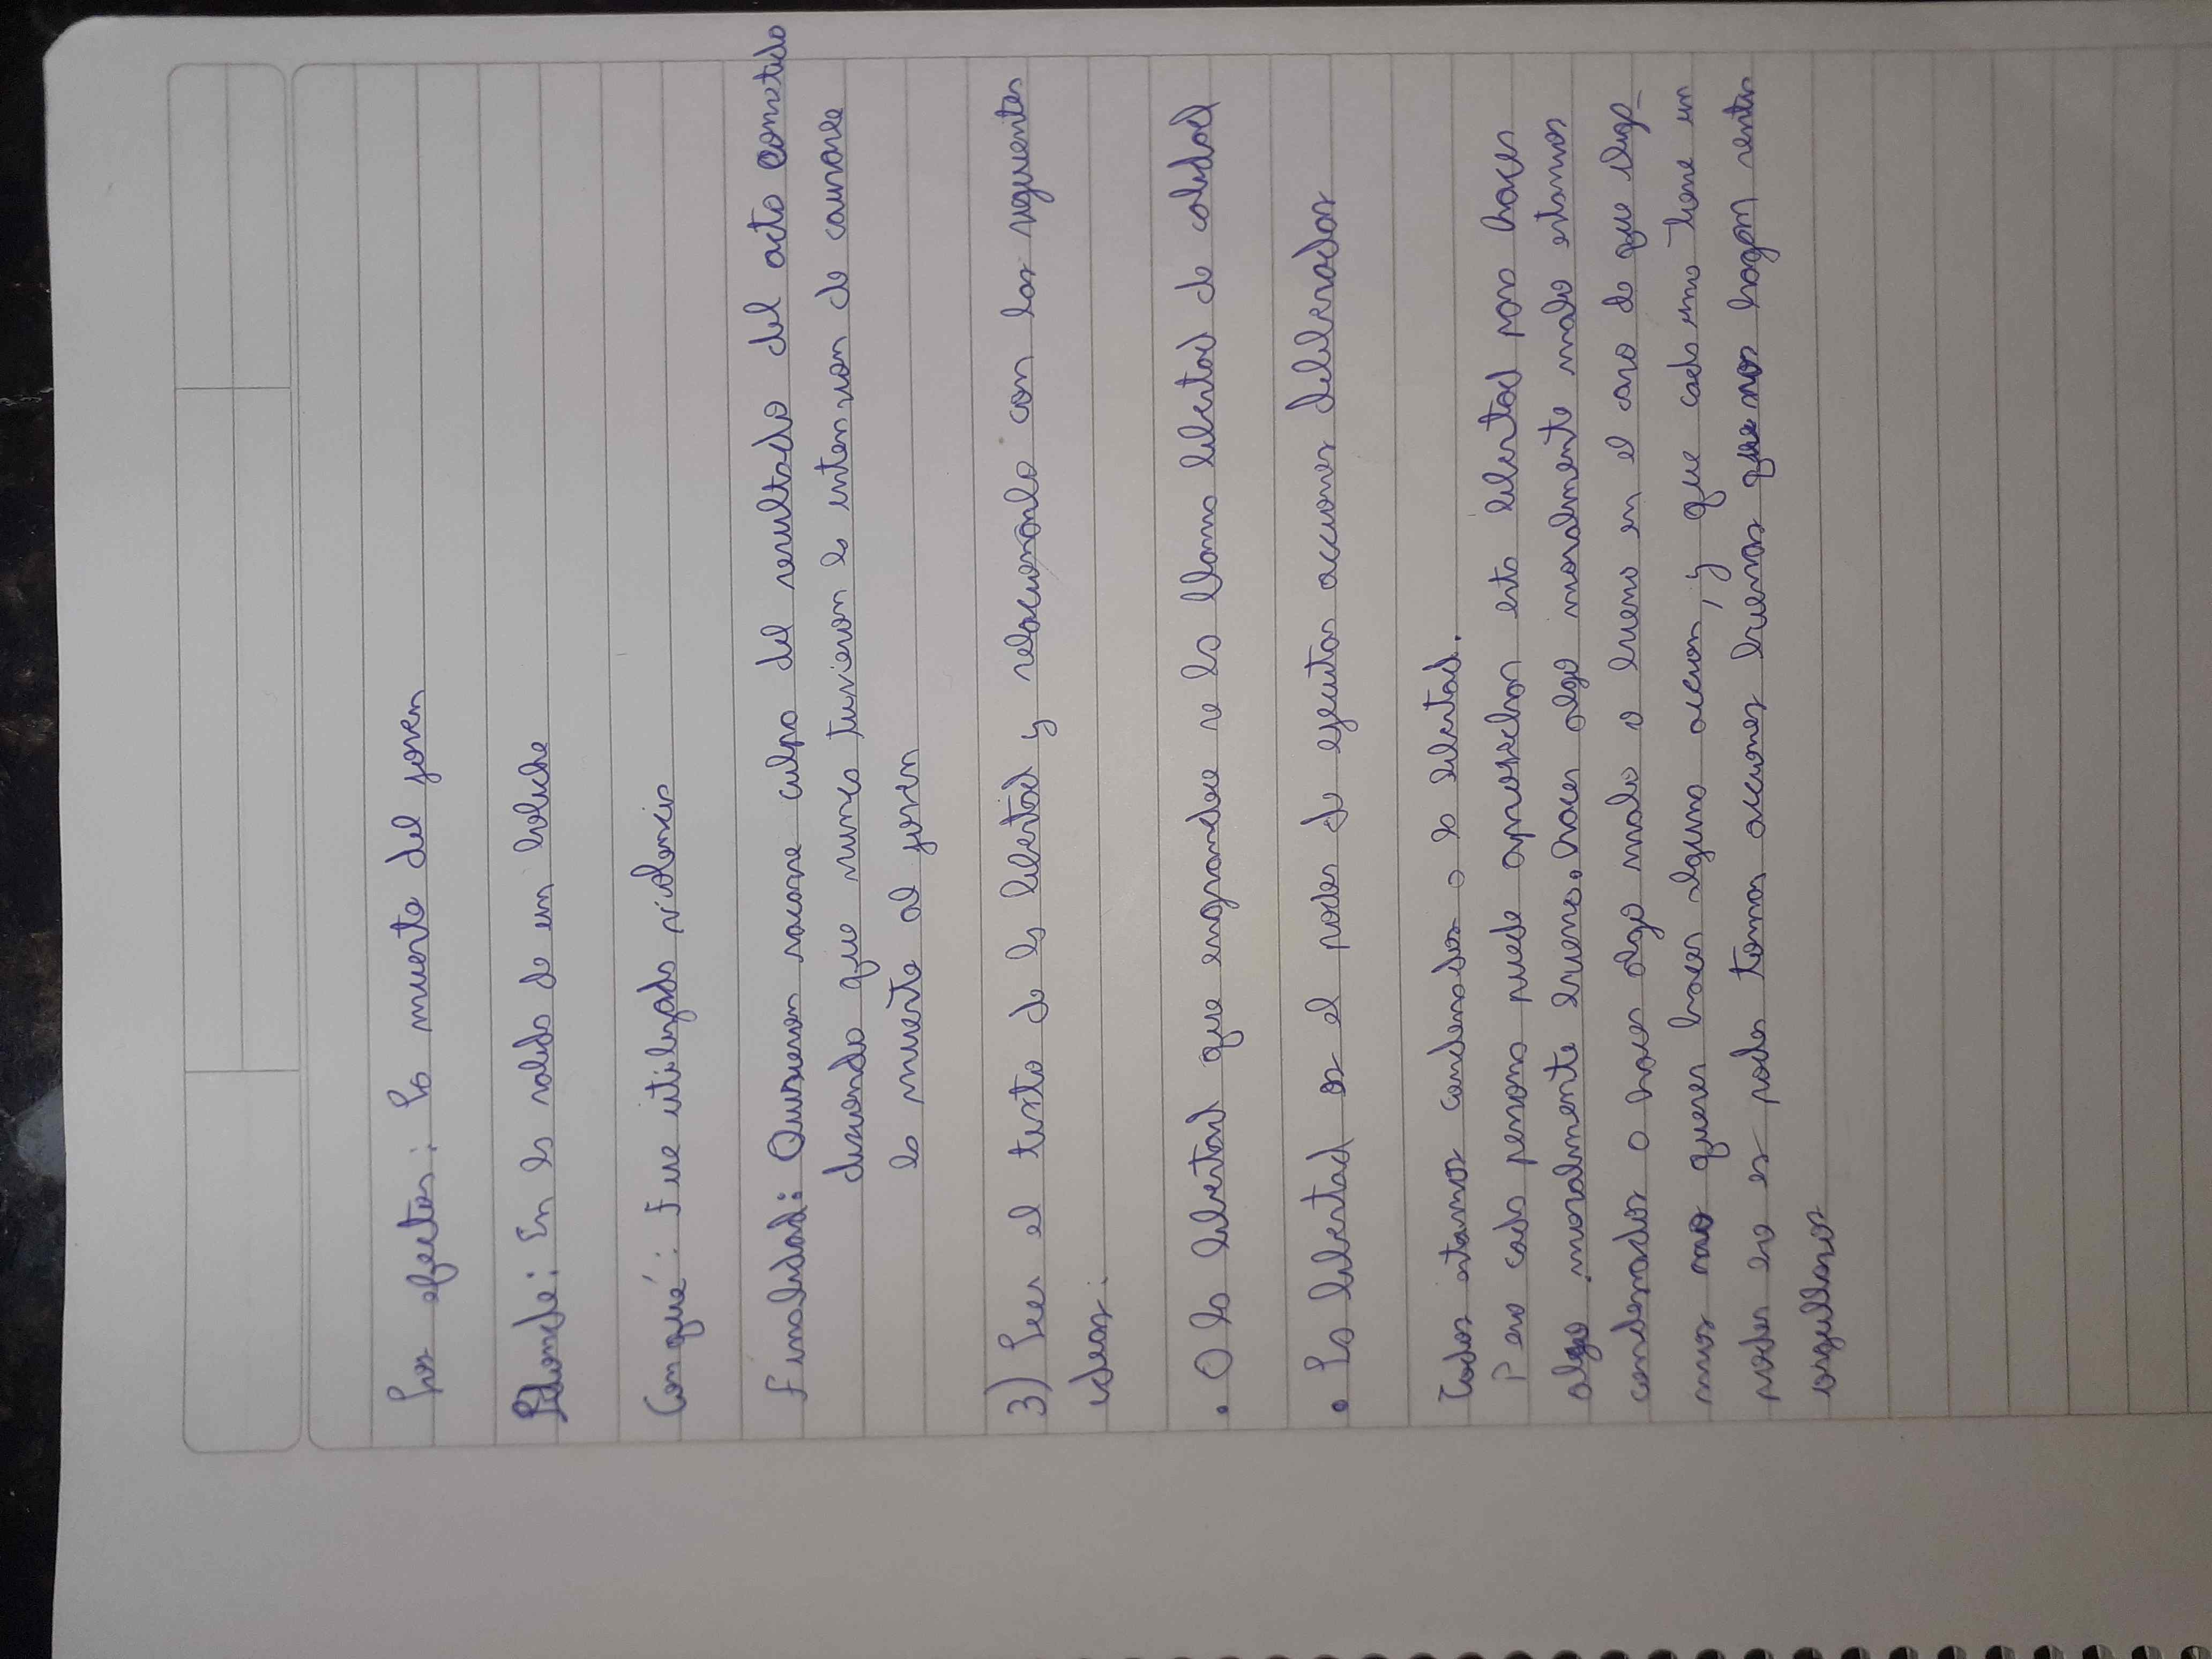 Los efectos: La muerte del joven
Dónde: En la salida de un boliche
Con qué: Fue utilizada violencia
Finalidad: Quisieron sacarse culpa del resultado del acto cometido
diciendo que nunca tuvieron la intension de causarle
la muerte al joven
3) Leer el texto de la libertad y relacionarlo con las siguientes
ideas:
• A la libertad que engrandece se la llama libertad de calidad
• La libertad es el poder de ejecutar acciones deliberadas
Todos estamos condenados a la libertad.
Pero cada persona puede aprovechar esta libertad para hacer
algo moralmente bueno. hacer algo moralmente malo estamos
condenados a hacer algo malo o bueno en el caso de que diga-
mos no querer hacer alguna accion, y que cada uno tiene un
poder eso es poder tomar acciones buenas que nos hagan sentir
orgullosos